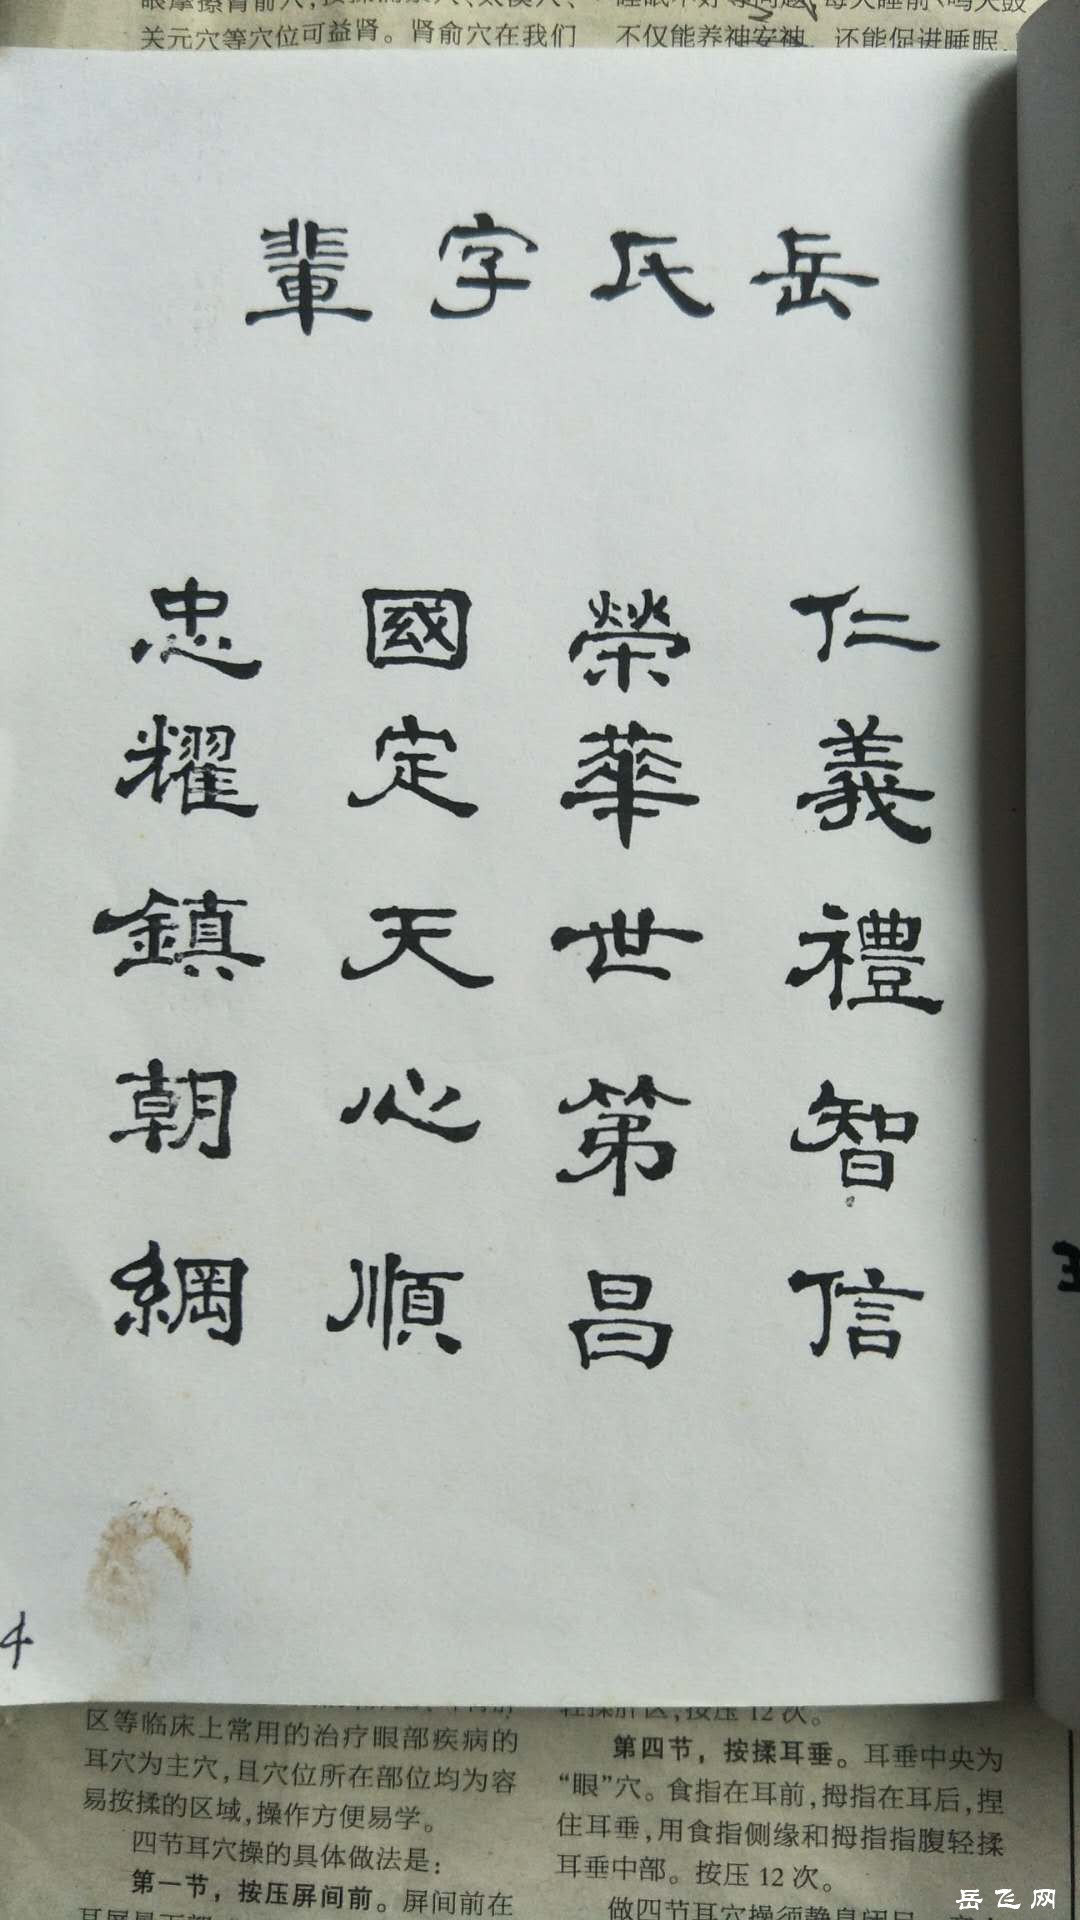 关元穴等穴位可益肾。肾俞穴在我们
不仅能养神安神，还能促进睡眠，
岳氏字輩
仁義禮智信
榮華世第昌
國定天心順
忠耀鎮朝綱
4
区等临床上常用的治疗眼部疾病的
耳穴为主穴，且穴位所在部位均为容
易按揉的区域，操作方便易学。
四节耳穴操的具体做法是：
第一节，按压屏间前。屏间前在
按压12次。
第四节，按揉耳垂。耳垂中央为
“眼”穴。食指在耳前，拇指在耳后，捏
住耳垂，用食指侧缘和拇指指腹轻揉
耳垂中部。按压12次。
做四节耳穴操须静息闭目
岳飞网